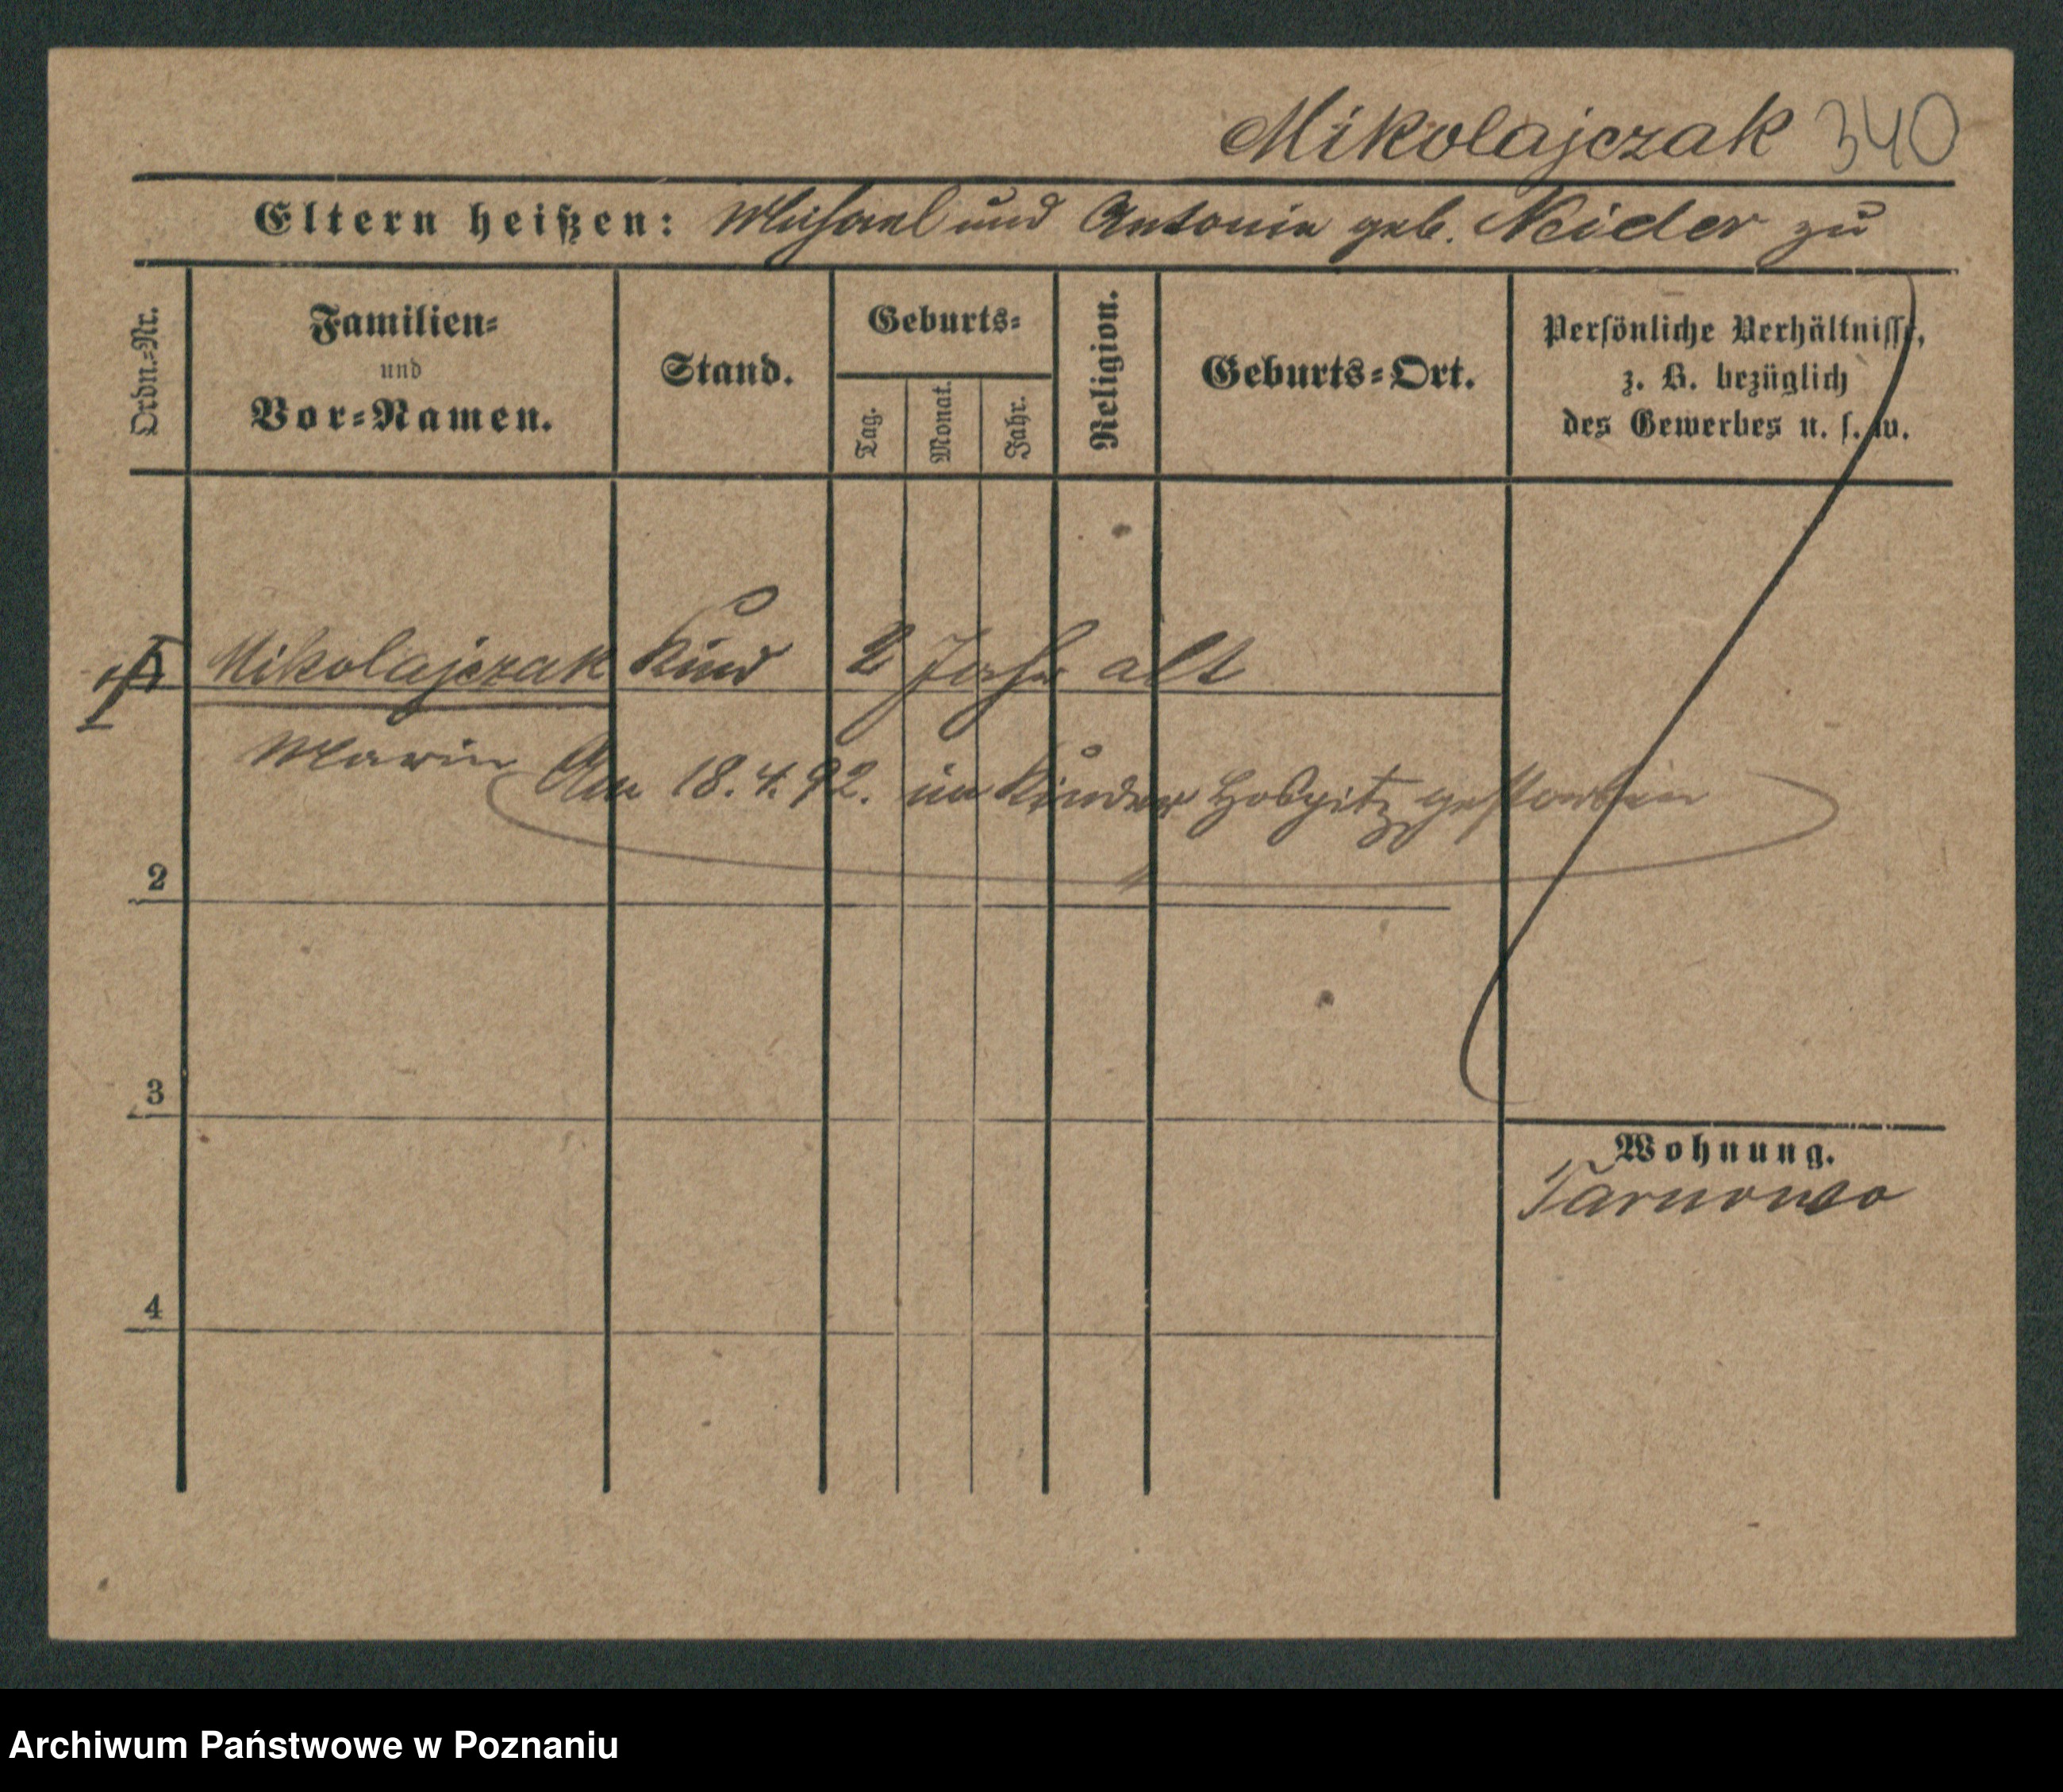 Mikolajczak 340
Eltern heißen: Michael und Antonie geb. Neider zu
Ordn.-Nr.
Familien-
und
Vor-Namen.
Stand.
Geburts-
Tag.
Monat.
Jahr.
Religion.
Geburts-Ort.
Persönliche Verhältnisse,
z. B. bezüglich
des Gewerbes u. s. w.
Mikolajczak Kind 2 Jahr alt
Marie Am 18.4.92. im Kinder Hospitz gestorben
2
3
Wohnung.
Tarnowo
4
Archiwum Państwowe w Poznaniu